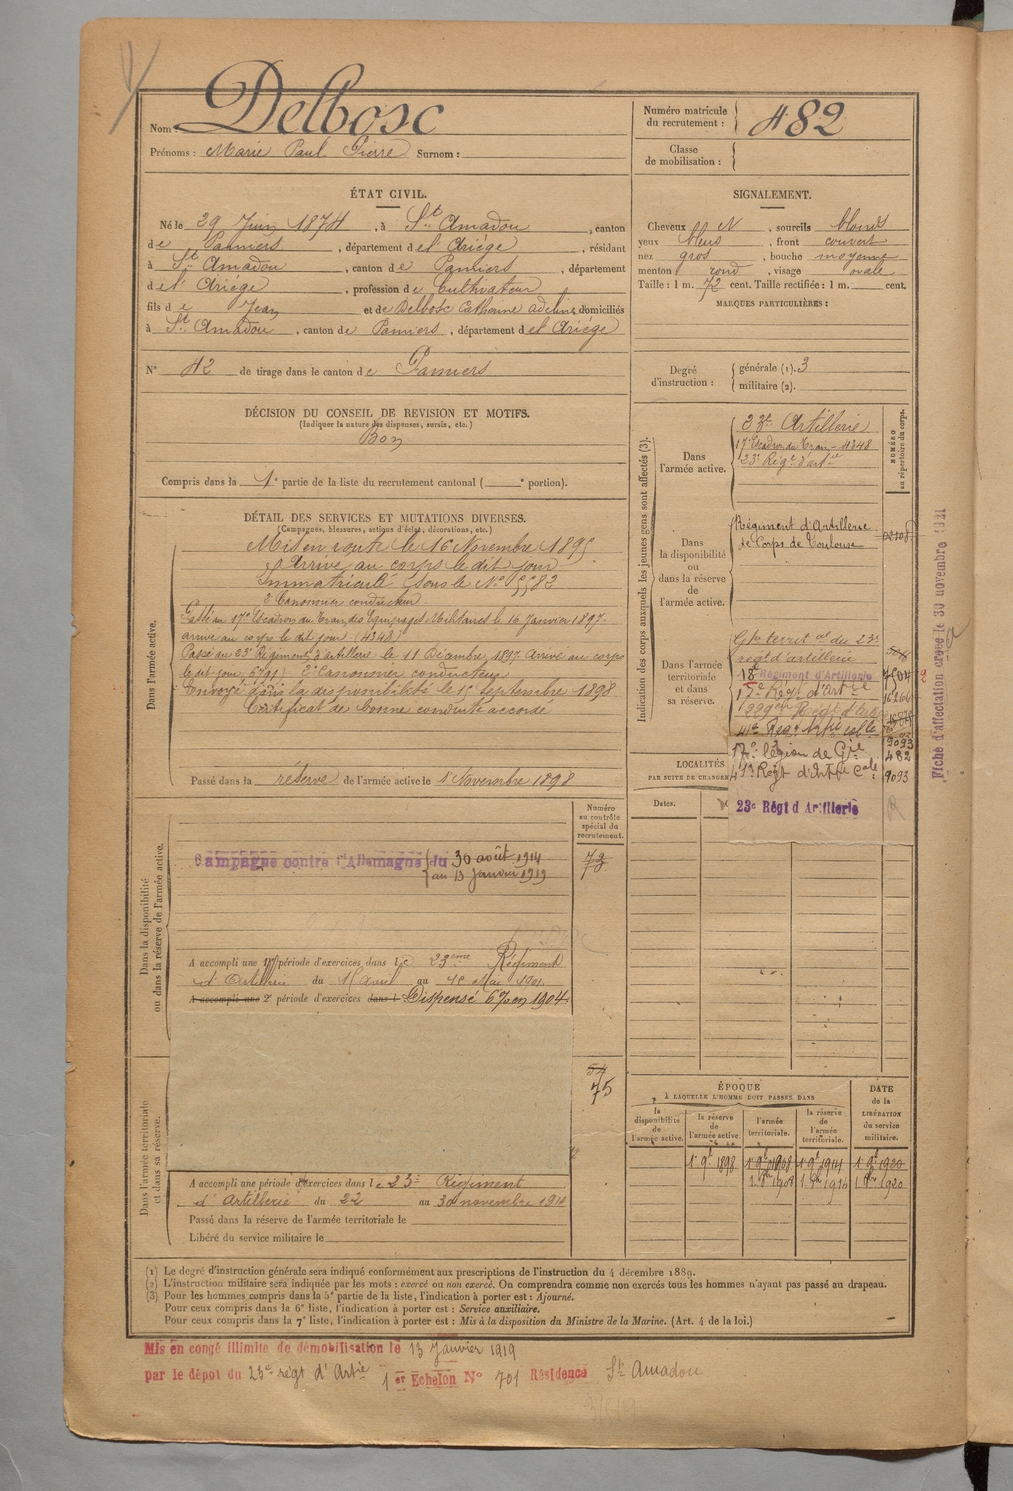 Nom Delbosc
Prénoms : Marie Paul Pierre Surnom :
Numéro matricule du recrutement : 482
Classe de mobilisation :
ÉTAT CIVIL.
Né le 29 Juin 1874, à St. Amadou, canton
de Pamiers, département de l'Ariège, résidant
à St. Amadou, canton de Pamiers, département
de l'Ariége, profession de Cultivateur
fils de Jean et de Delbosc Catherine Adeline domiciliés
à St. Amadou, canton de Pamiers, département de l'Ariége
N° 42 de tirage dans le canton de Pamiers
SIGNALEMENT.
Cheveux N, sourcils blonds
yeux bleus, front couvert
nez gros, bouche moyenne
menton rond, visage ovale
Taille : 1 m. 72 cent. Taille rectifiée : 1 m. cent.
MARQUES PARTICULIÈRES :
Degré d'instruction : générale (1). 3
militaire (2).
DÉCISION DU CONSEIL DE REVISION ET MOTIFS.
(Indiquer la nature des dispenses, sursis, etc.)
Bon
Compris dans la 1e partie de la liste du recrutement cantonal ( e portion).
DÉTAIL DES SERVICES ET MUTATIONS DIVERSES.
(Campagnes, blessures, actions d'éclat, décorations, etc.)
Dans l'armée active.
Mis en route le 16 Novembre 1895
Arrivé au corps le dit jour
Immatriculé sous le N° 5583
2e Canonnier conducteur.
Passé au 17e Escadron du Train des Equipages Militaires le 16 Janvier 1897.
arrivé au corps le dit jour (4348)
Passé au 23e Régiment d'artillerie le 11 Décembre 1897. Arrivé au corps
le dit jour 2e Canonnier conducteur.
Envoyé dans la disponibilité le 15 septembre 1898
Certificat de bonne conduite accordé
Passé dans la réserve de l'armée active le 1 Novembre 1898
Indication des corps auxquels les jeunes gens sont affectés (3).
NUMÉRO au répertoire du corps.
Dans l'armée active.
23e Artillerie
17e Escadron du Train - 4348
23e Régt d'artie
Dans la disponibilité ou dans la réserve de l'armée active.
Régiment d'Artillerie
de Corps de Toulouse
Dans l'armée territoriale et dans sa réserve.
Gpe territal du 23e
régt d'artillerie
18e Régiment d'Artillerie
17e Légion de Gie 482
41e Régt d'Artie Cale 9093
23e Régt d'Artillerie
LOCALITÉS
PAR SUITE DE CHANGEM
Dates.
Fiche d'affectation créée le 30 novembre 1921
Numéro au contrôle spécial du recrutement.
Dans la disponibilité ou dans la réserve de l'armée active.
Campagne contre l'Allemagne du 30 août 1914
au 13 Janvier 1919
73
A accompli une 1re période d'exercices dans le 23eme Régiment
d'Artillerie du au Mai 1901
A accompli une 2e période d'exercices dans l Dispensé en 1904
75
Dans l'armée territoriale et dans sa réserve.
A accompli une période d'exercices dans le 23e Régiment
d'Artillerie du 22 au 30 novembre 1910
Passé dans la réserve de l'armée territoriale le
Libéré du service militaire le
ÉPOQUE
À LAQUELLE L'HOMME DOIT PASSER DANS
DATE de la LIBÉRATION du service militaire.
la disponibilité de l'armée active.
la réserve de l'armée active.
l'armée territoriale.
la réserve de l'armée territoriale.
1 9e 1898
(1) Le degré d'instruction générale sera indiqué conformément aux prescriptions de l'instruction du 4 décembre 1889.
(2) L'instruction militaire sera indiquée par les mots : exercé ou non exercé. On comprendra comme non exercés tous les hommes n'ayant pas passé au drapeau.
(3) Pour les hommes compris dans la 5e partie de la liste, l'indication à porter est : Ajourné.
Pour ceux compris dans la 6e liste, l'indication à porter est : Service auxiliaire.
Pour ceux compris dans la 7e liste, l'indication à porter est : Mis à la disposition du Ministre de la Marine. (Art. 4 de la loi.)
Mis en congé illimité de démobilisation le 13 Janvier 1919
par le dépot du 23e régt d'Artie 1er Echelon N° 701 Résidence St. Amadou